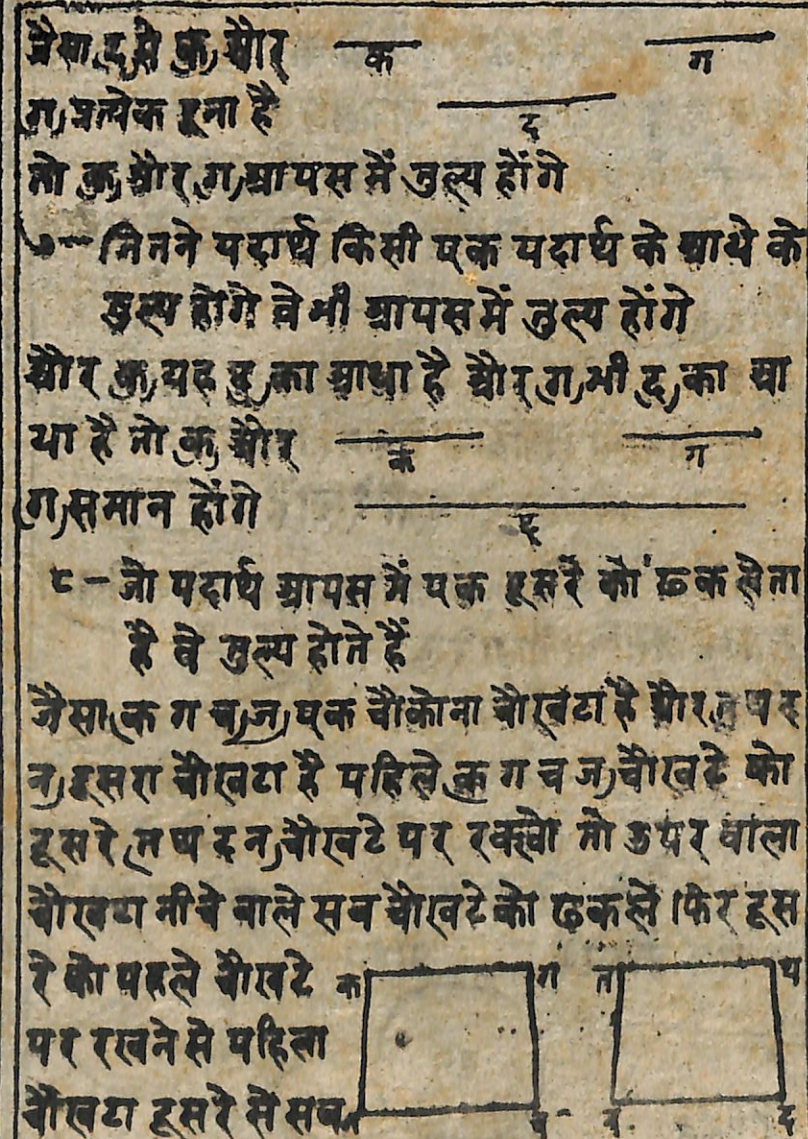 जैसा (द) से (क) और्
क ग
(ग) प्रत्येक दूना है
द
तो (क) और् (ग) आपस में तुल्य होंगे
७ — जितने पदार्थ किसी एक पदार्थ के आधे के
तुल्य होंगे वे भी आपस में तुल्य होंगे
और (क) यह (द) का आधा है और् (ग) भी (द) का आ
धा है तो (क) और्
क ग
(ग) समान होंगे
द
८ — जो पदार्थ आपस में एक दूसरे को ढक लेता
है वे तुल्य होते हैं
जैसा (क ग च ज) एक चौकोना चौखटा है और (त प द
न) दूसरा चौखटा है पहिले (क ग च ज) चौखटे को
दूसरे (त प द न) चौखटे पर् रक्खो तो उपर् वाला
चौखटा नीचे वाले सब चौखटे को ढकले । फेर दूस
रे को पहले चौखटे
क ग त प
पर रखने से पहिला
चौखटा दूसरे से सब
द